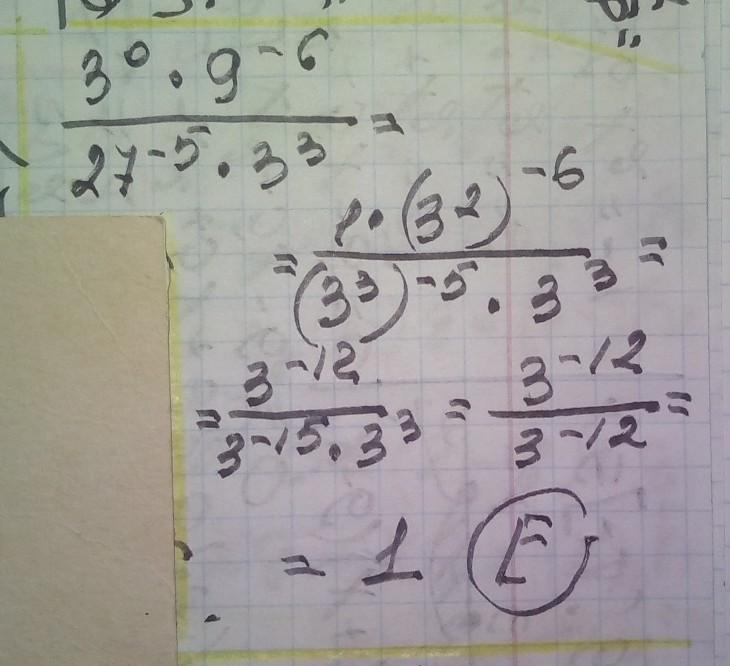 3⁰ · 9⁻⁶
27⁻⁵ · 3³ =
= 1 · (3²)⁻⁶
(3³)⁻⁵ · 3³ =
= 3⁻¹² = 3⁻¹² =
3⁻¹⁵ · 3³ 3⁻¹²
= 1 E